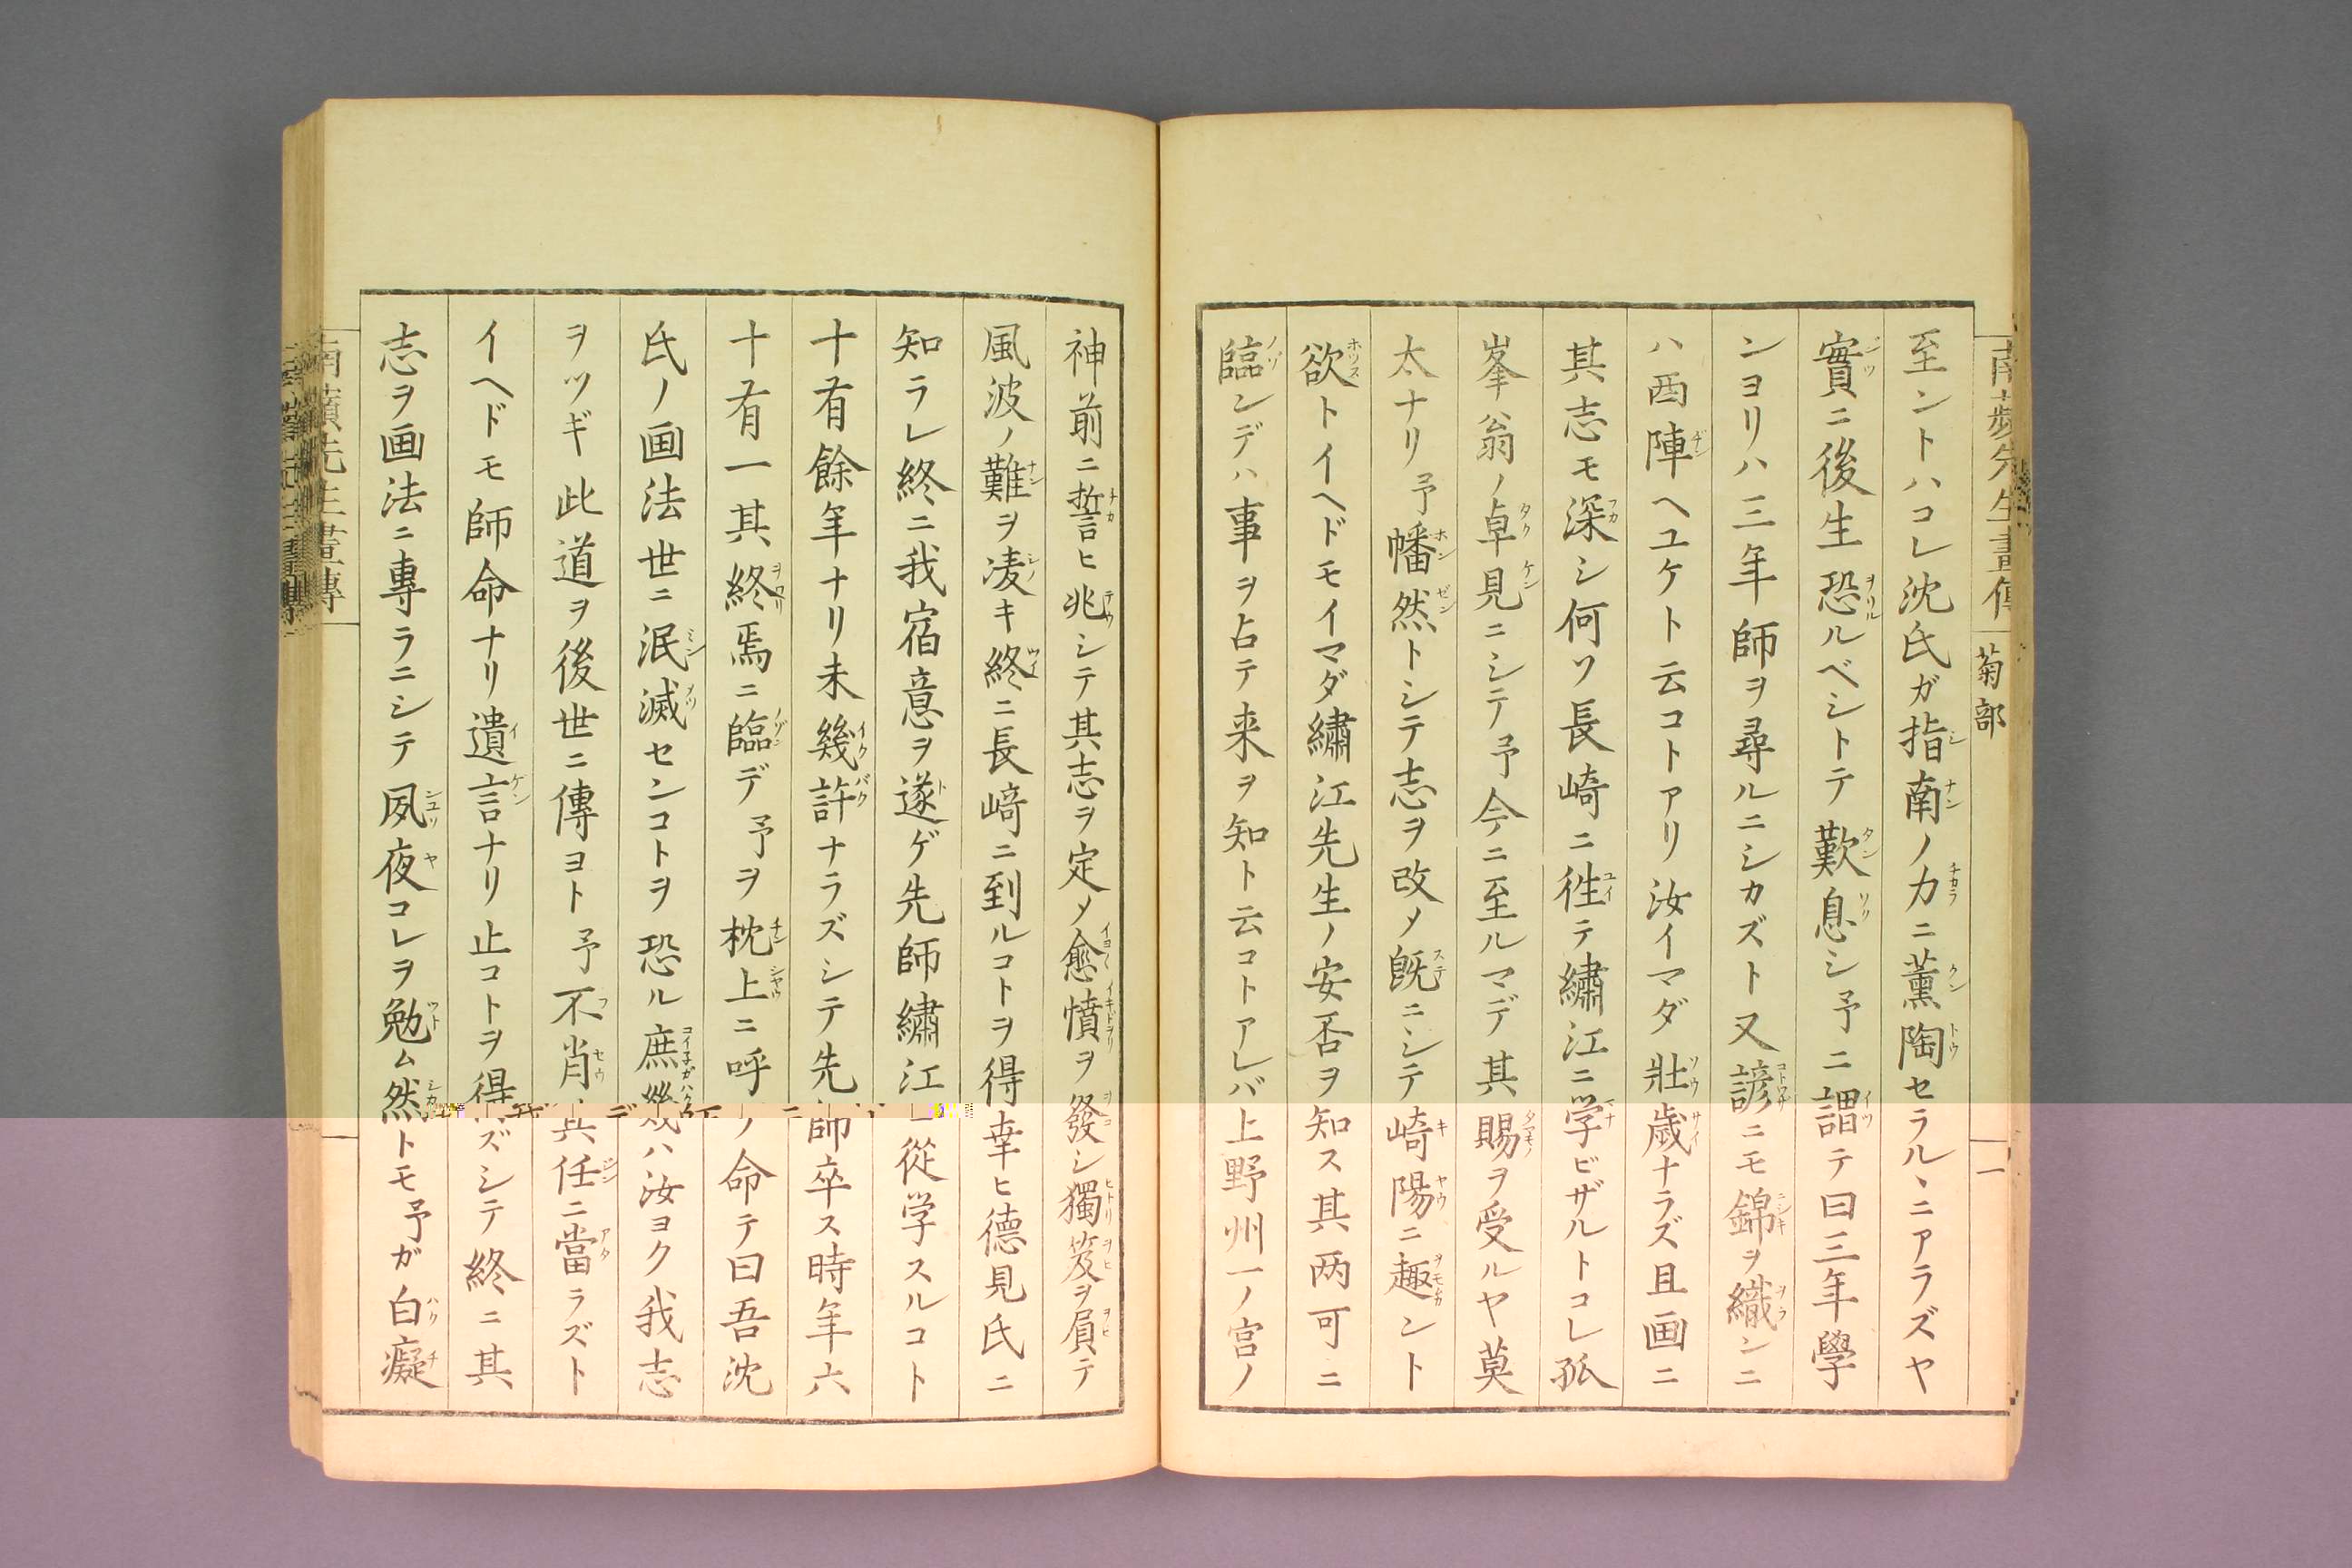 南蘋先生畫傳 菊部 一
至ントハコレ沈氏ガ指南ノ力ニ薫陶セラルヽニアラズヤ
實ニ後生恐ルベシトテ歎息シ予ニ謂テ曰三年學
ンヨリハ三年師ヲ尋ルニシカズト又諺ニモ錦ヲ織ンニ
ハ西陣ヘユケト云コトアリ汝イマダ壯歳ナラズ且画ニ
其志モ深シ何ソ長崎ニ徃テ繡江ニ学ビザルトコレ孤
峯翁ノ卓見ニシテ予今ニ至ルマデ其賜ヲ受ルヤ莫
太ナリ予幡然トシテ志ヲ改メ既ニシテ崎陽ニ趣ント
欲トイヘドモイマダ繡江先生ノ安否ヲ知ス其両可ニ
臨ンデハ事ヲ占テ来ヲ知ト云コトアレバ上野州一ノ宮ノ
神前ニ誓ヒ兆シテ其志ヲ定メ愈憤ヲ發シ獨笈ヲ屓テ
風波ノ難ヲ凌キ終ニ長﨑ニ到ルコトヲ得幸ヒ德見氏ニ
知ラレ終ニ我宿意ヲ遂ゲ先師繡江 從学スルコト
十有餘年ナリ未幾許ナラズシテ先師卒ス時年六
十有一其終焉ニ臨デ予ヲ枕上ニ呼 命テ曰吾沈
氏ノ画法世ニ泯滅センコトヲ恐ル庶幾ハ汝ヨク我志
ヲツギ此道ヲ後世ニ傳ヨト予不肖 其任ニ當ラズト
イヘドモ師命ナリ遺言ナリ止コトヲ得ズシテ終ニ其
志ヲ画法ニ專ラニシテ夙夜コレヲ勉ム然トモ予ガ白癡
南蘋先生畫傳